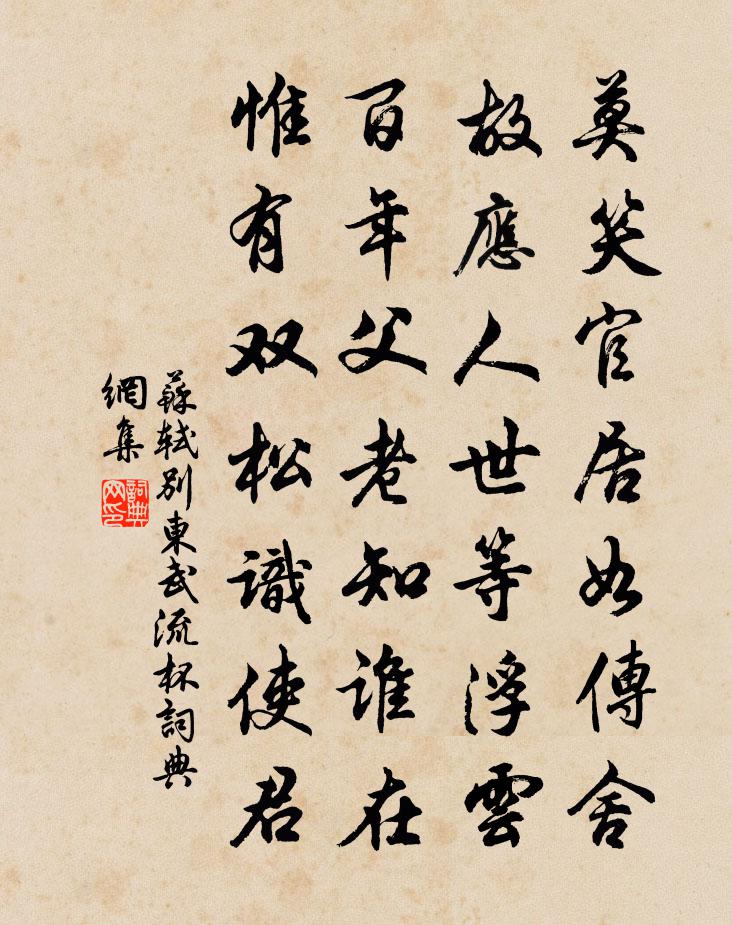 莫笑官居如傳舍
故應人世等浮雲
百年父老知誰在
惟有双松識使君
蘇軾別東武流杯詞典
網集
詞典
网印